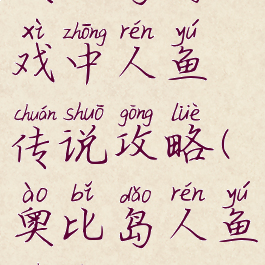 xì zhōng rén yú
戏中人鱼
chuán shuō gōng lüè
传说攻略(
ào bǐ dǎo rén yú
奥比岛人鱼